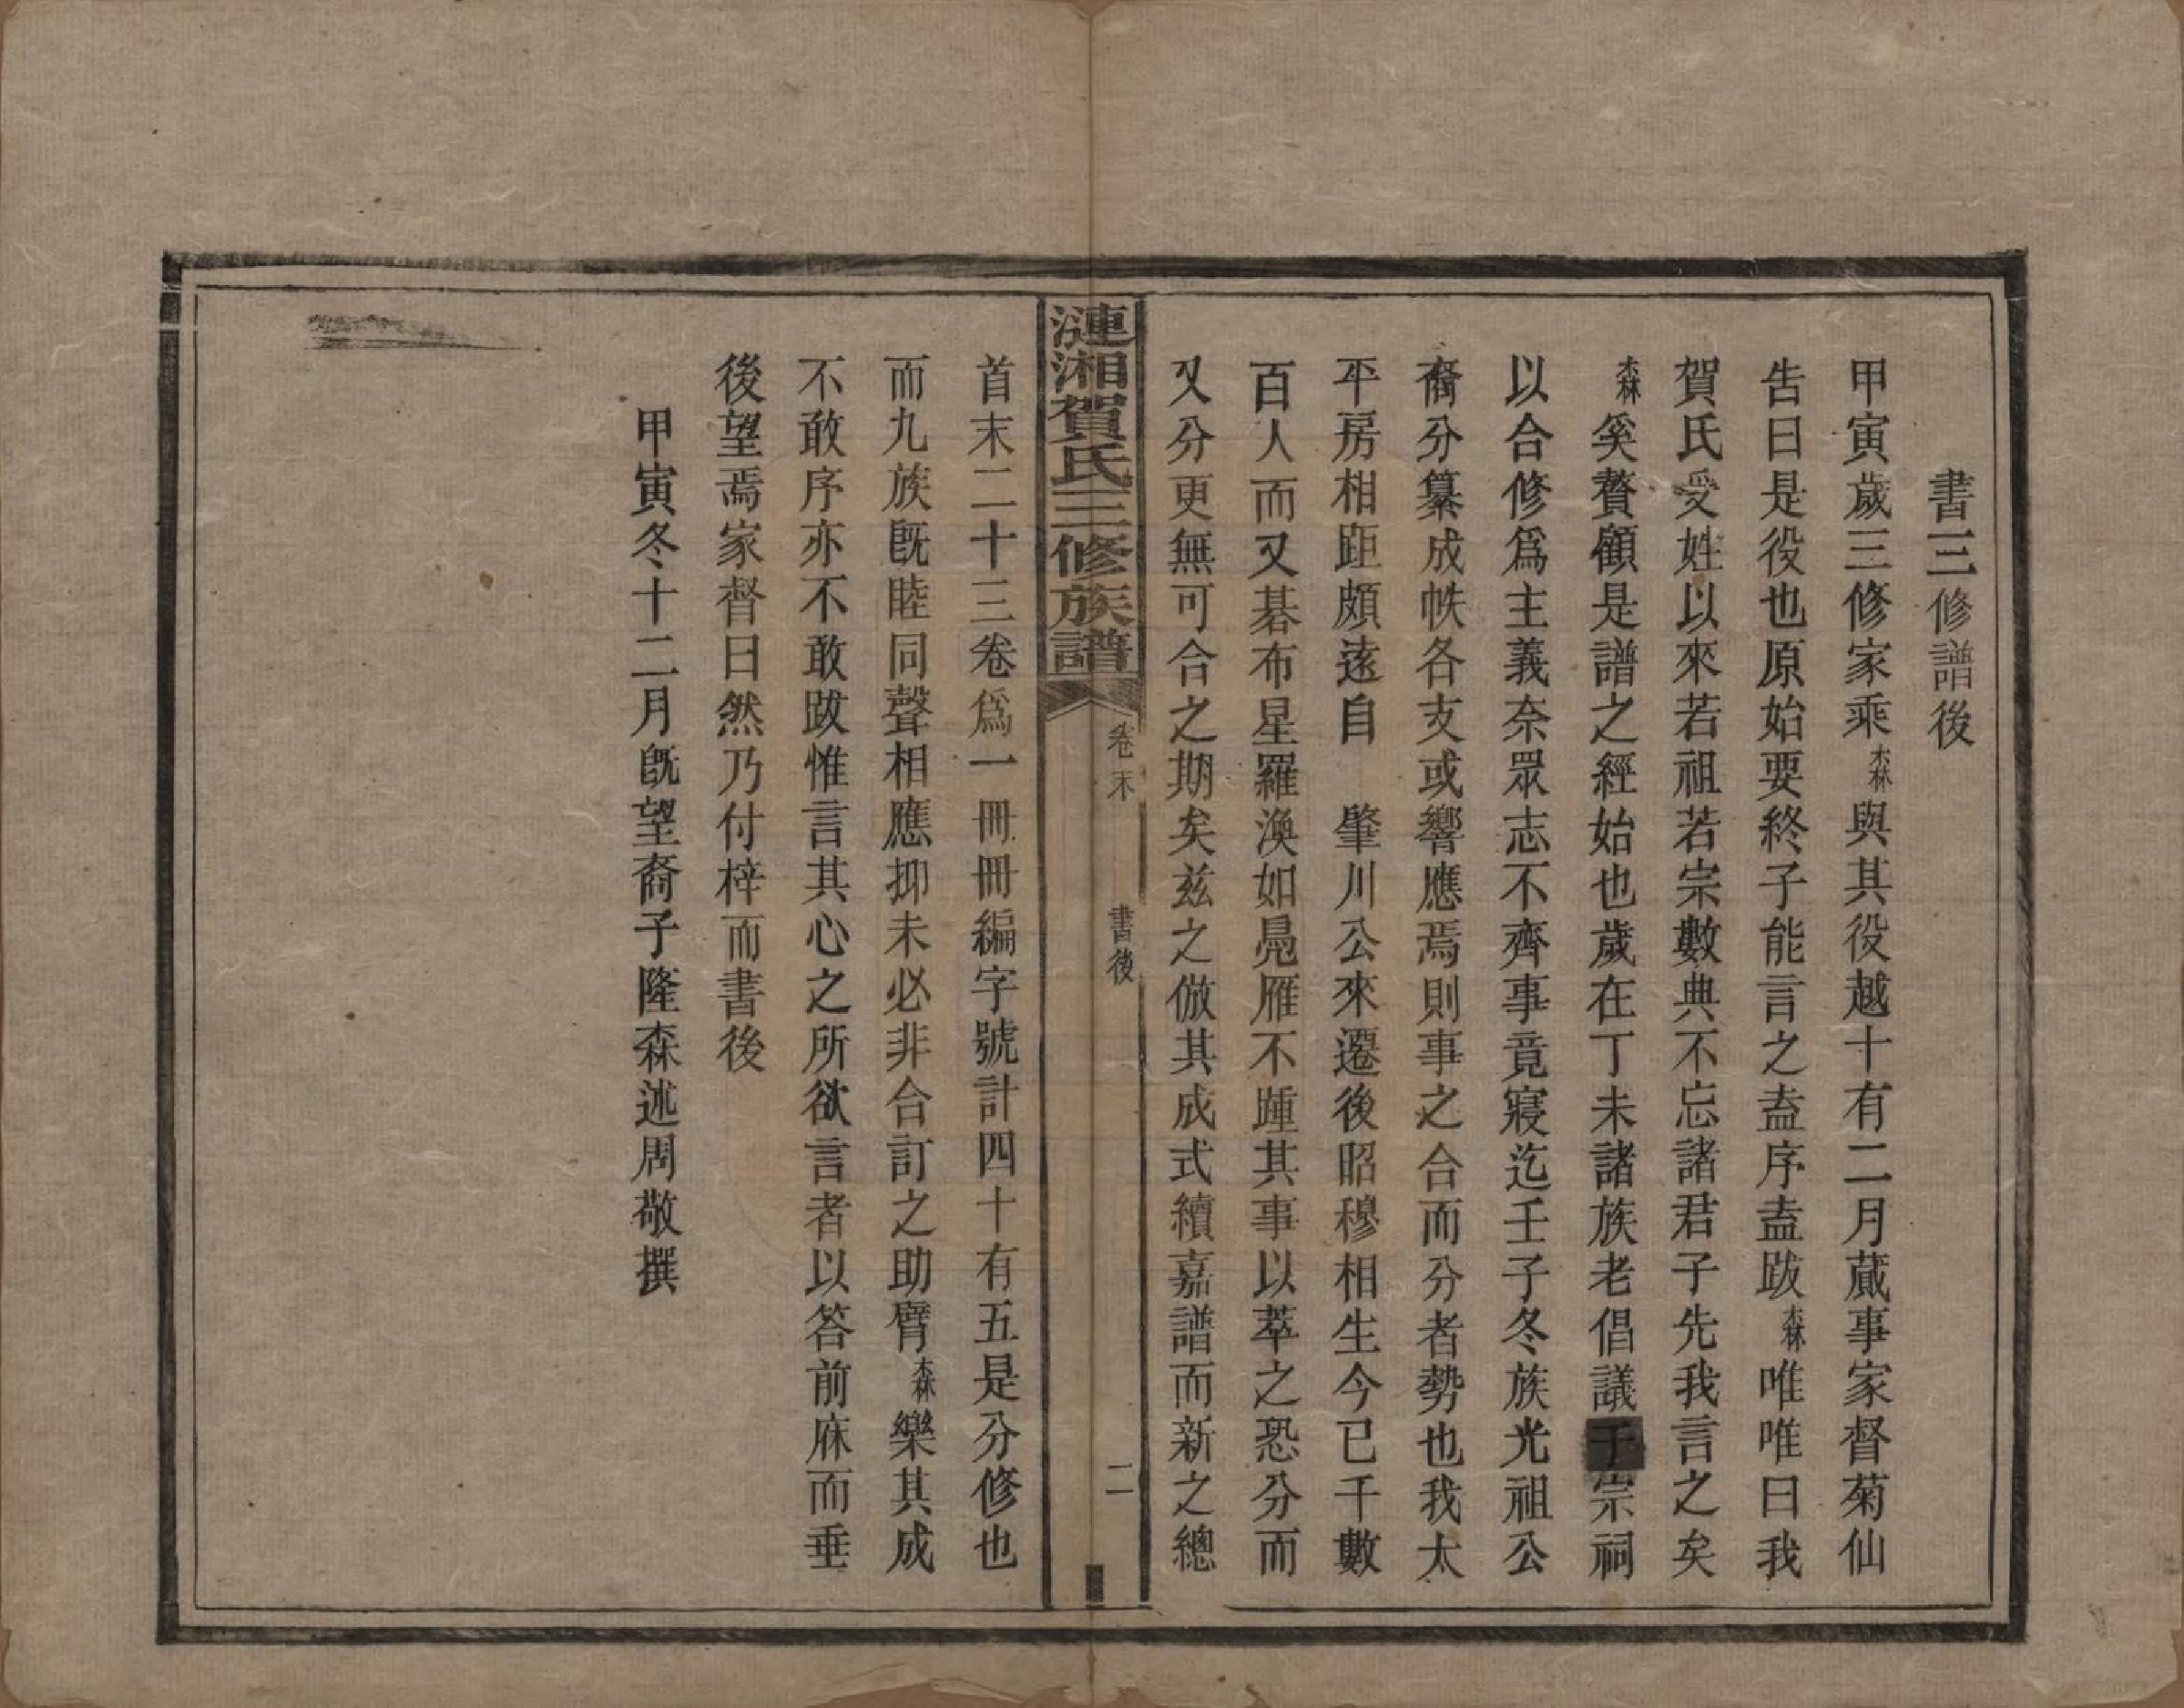 書三修譜後
甲寅歲三修家乘森與其役越十有二月蕆事家督菊仙
告曰是役也原始要終子能言之盍序盍跋森唯唯曰我
賀氏受姓以來若祖若宗數典不忘諸君子先我言之矣
森奚贅顧是譜之經始也歲在丁未諸族老倡議于宗祠
以合修爲主義奈眾志不齊事竟寢迄壬子冬族光祖公
裔分纂成帙各支或響應焉則事之合而分者勢也我太
平房相距頗遠自　肇川公來遷後昭穆相生今已千數
百人而又碁布星羅渙如鳧雁不踵其事以萃之恐分而
又分更無可合之期矣茲之倣其成式續嘉譜而新之總
漣湘賀氏三修族譜　卷末　書後　二
首末二十三卷爲一冊冊編字號計四十有五是分修也
而九族既睦同聲相應抑未必非合訂之助臂森樂其成
不敢序亦不敢跋惟言其心之所欲言者以答前庥而垂
後望焉家督曰然乃付梓而書後
甲寅冬十二月既望裔子隆森述周敬撰